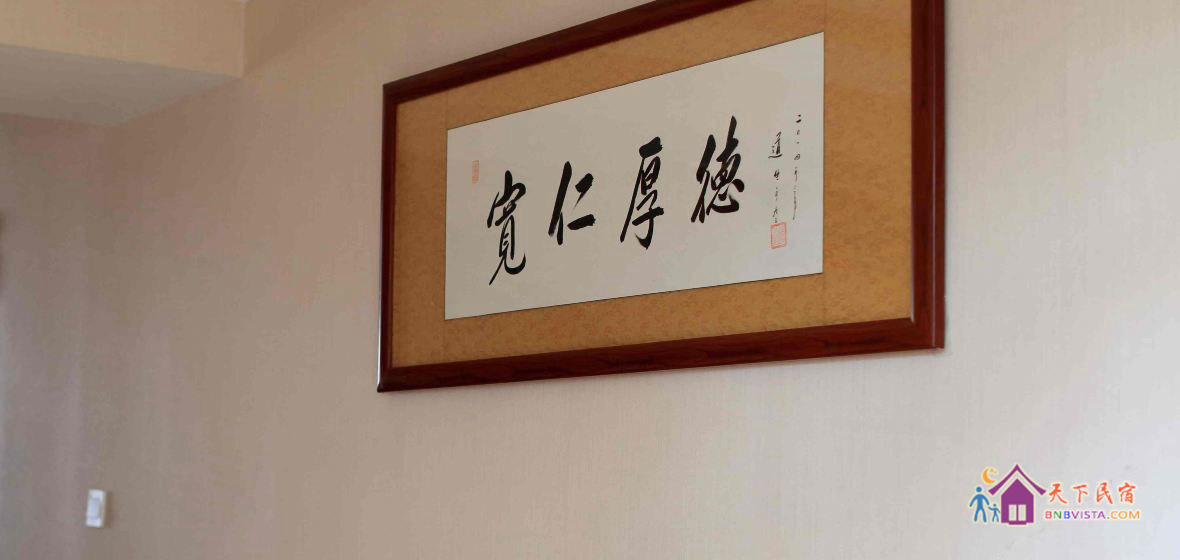 寬仁厚德
二〇一四年
天下民宿
BNBVISTA.COM